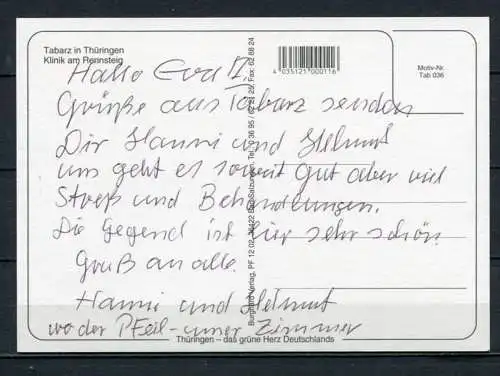 Tabarz in Thüringen
Klinik am Rennsteig
4 035121 000116
Motiv-Nr.
Tab 036
Hallo Eva
Grüße aus Tabarz senden
Dir Hanni und Helmut
uns geht es soweit gut aber viel
Streß und Behandlungen.
Die Gegend ist hier sehr schön
Gruß an alle.
Hanni und Helmut
wo der Pfeil - unser Zimmer
Thüringen – das grüne Herz Deutschlands